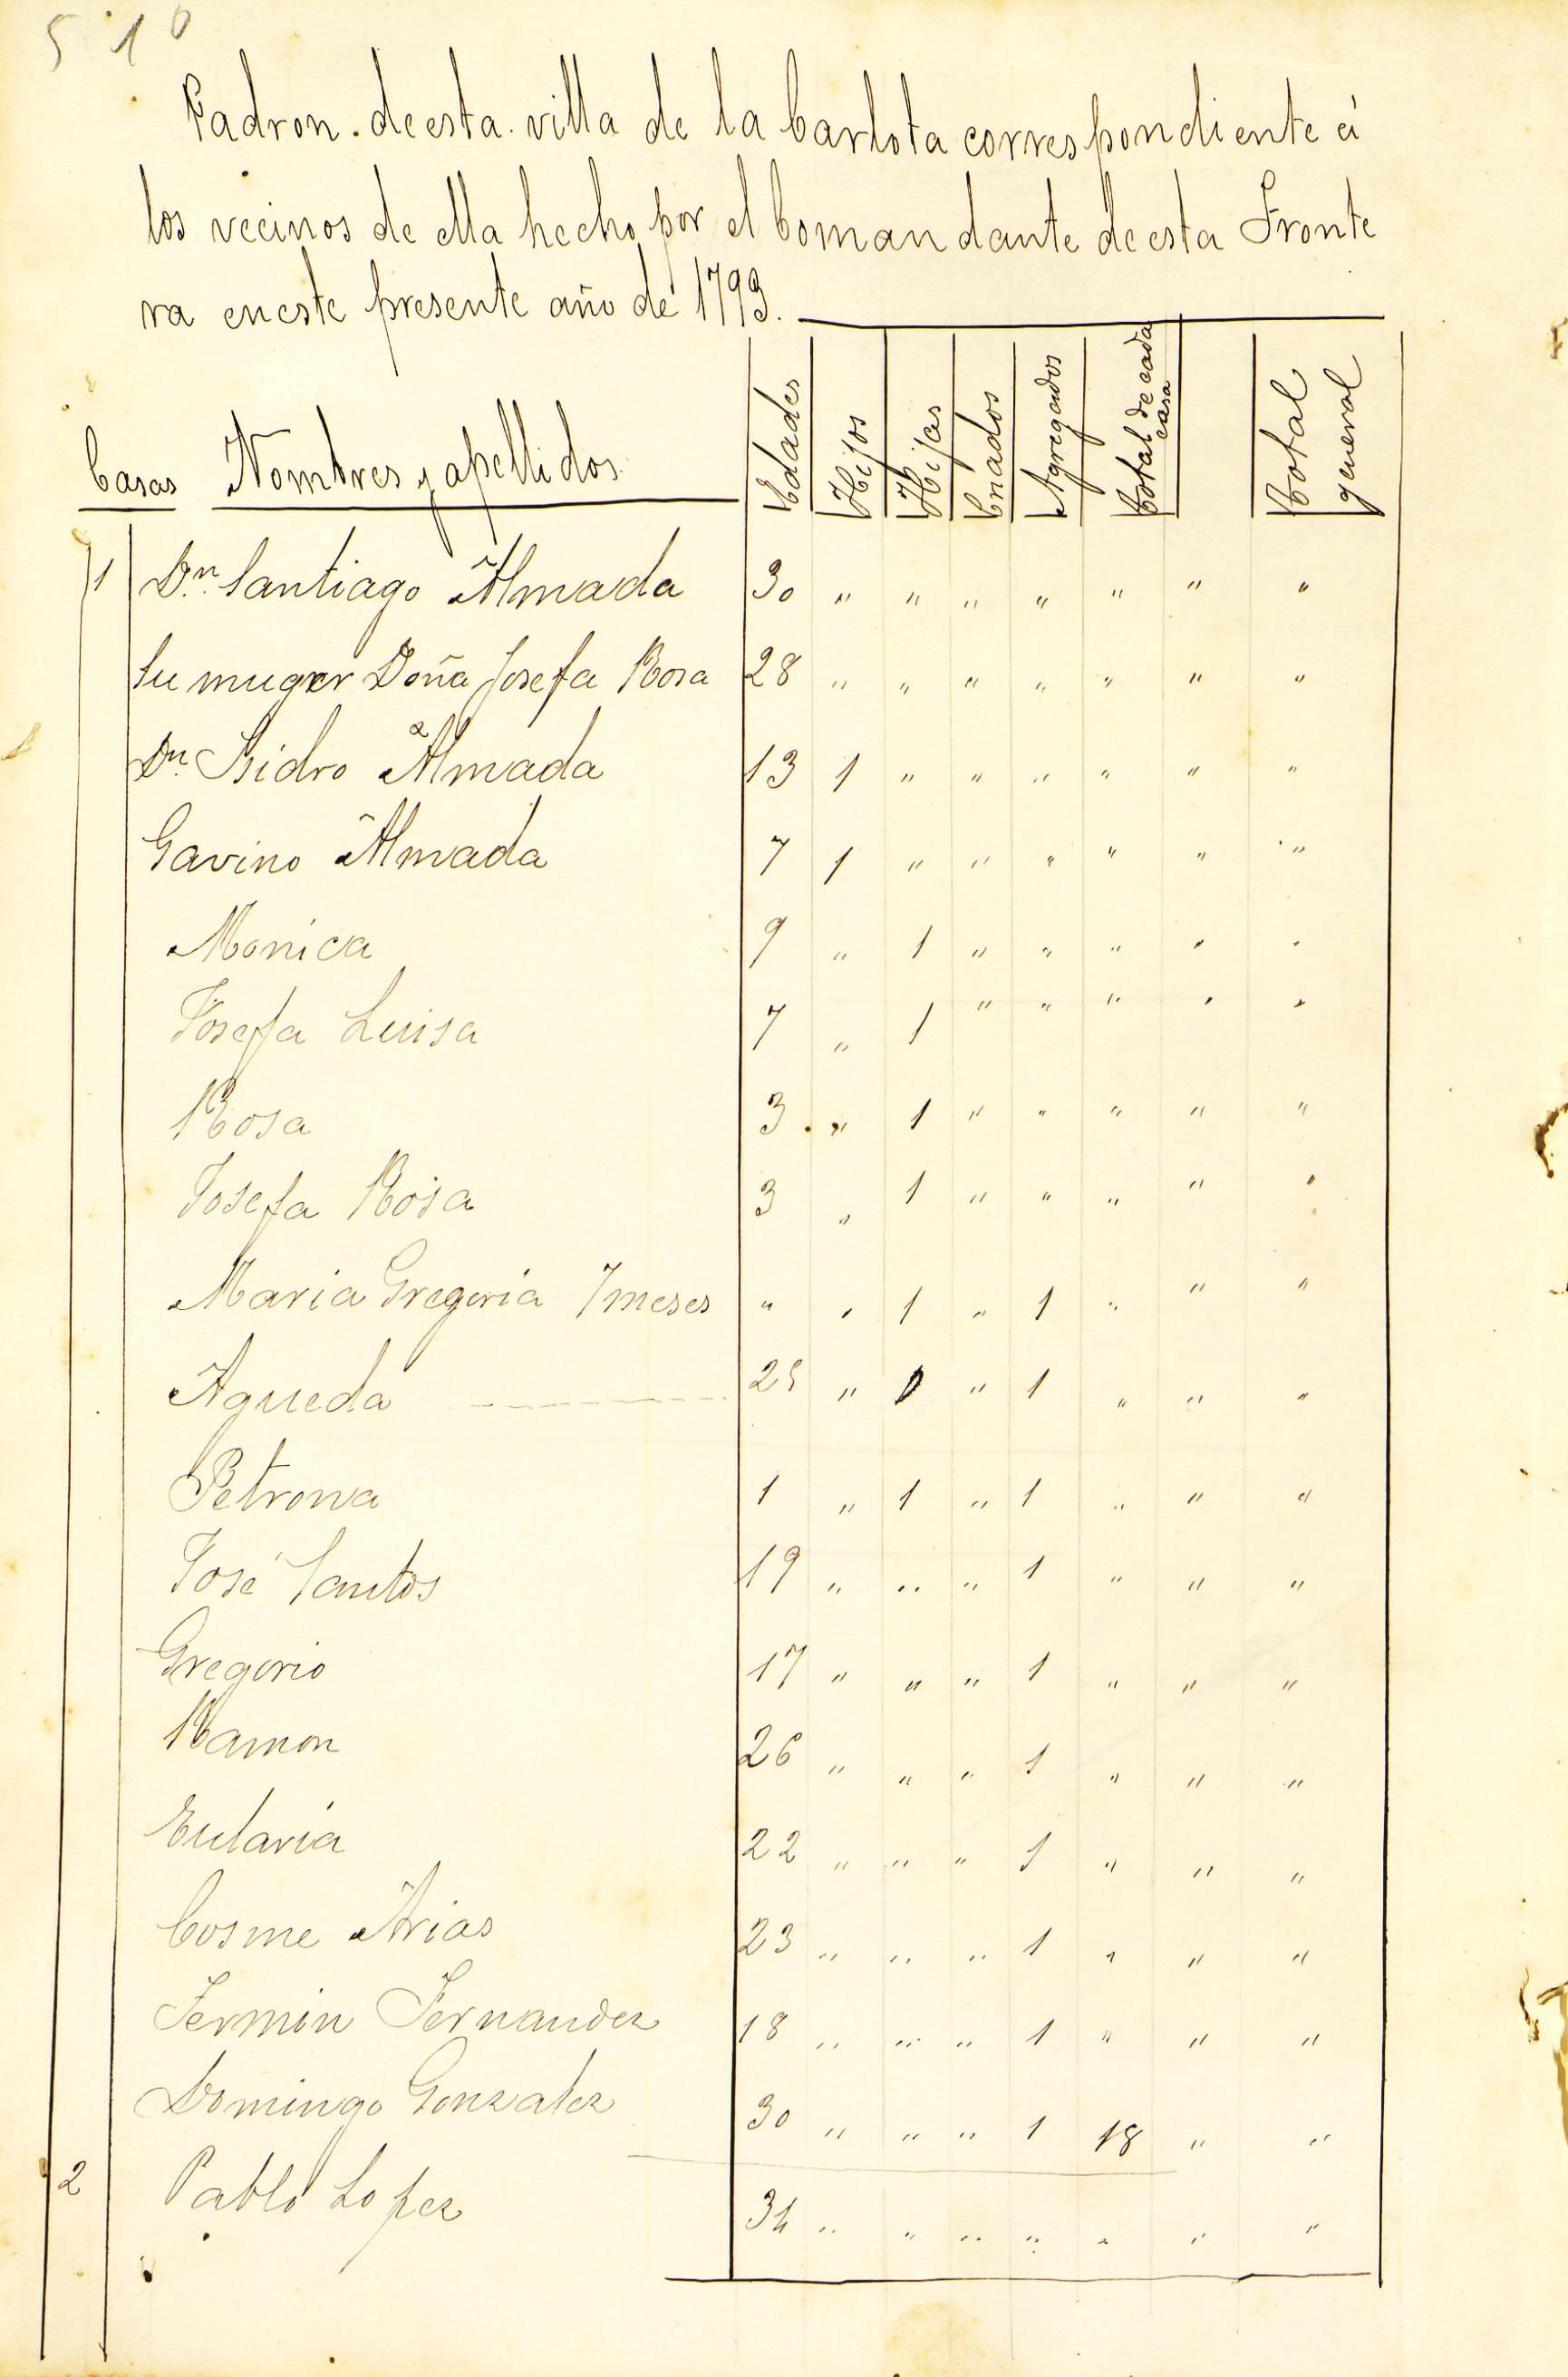 5 1 0
Padron. de esta. villa de la Carlota correspondiente á
los vecinos de ella hecho por el Comandante de esta Fronte
ra en este presente año de 1793.
Casas Nombres y apellidos Edades Hijos Hijas Criados Agregados total de cada casa total general
1 Dn. Santiago Almada 30 " " " " " " "
Su muger Doña Josefa Rosa 28 " " " " " " "
Dn. Isidro Almada 13 1 " " " " " "
Gavino Almada 7 1 " " " " " "
Monica 9 " 1 " " " " "
Josefa Luisa 7 " 1 " " " " "
Rosa 3 " 1 " " " " "
Josefa Rosa 3 " 1 " " " " "
Maria Gregoria 7 meses " " 1 " 1 " " "
Agueda " " 1 " " "
Petrona 1 " 1 " 1 " " "
José Santos 19 " " " 1 " " "
Gregorio 17 " " " 1 " " "
Ramon 26 " " " 1 " " "
Eularia 22 " " " 1 " " "
Cosme Arias 23 " " " 1 " " "
Fermin Fernandez 18 " " " 1 " " "
Domingo Gonzalez 30 " " " 1 18 " "
2 Pablo Lopez 34 " " " " " " "